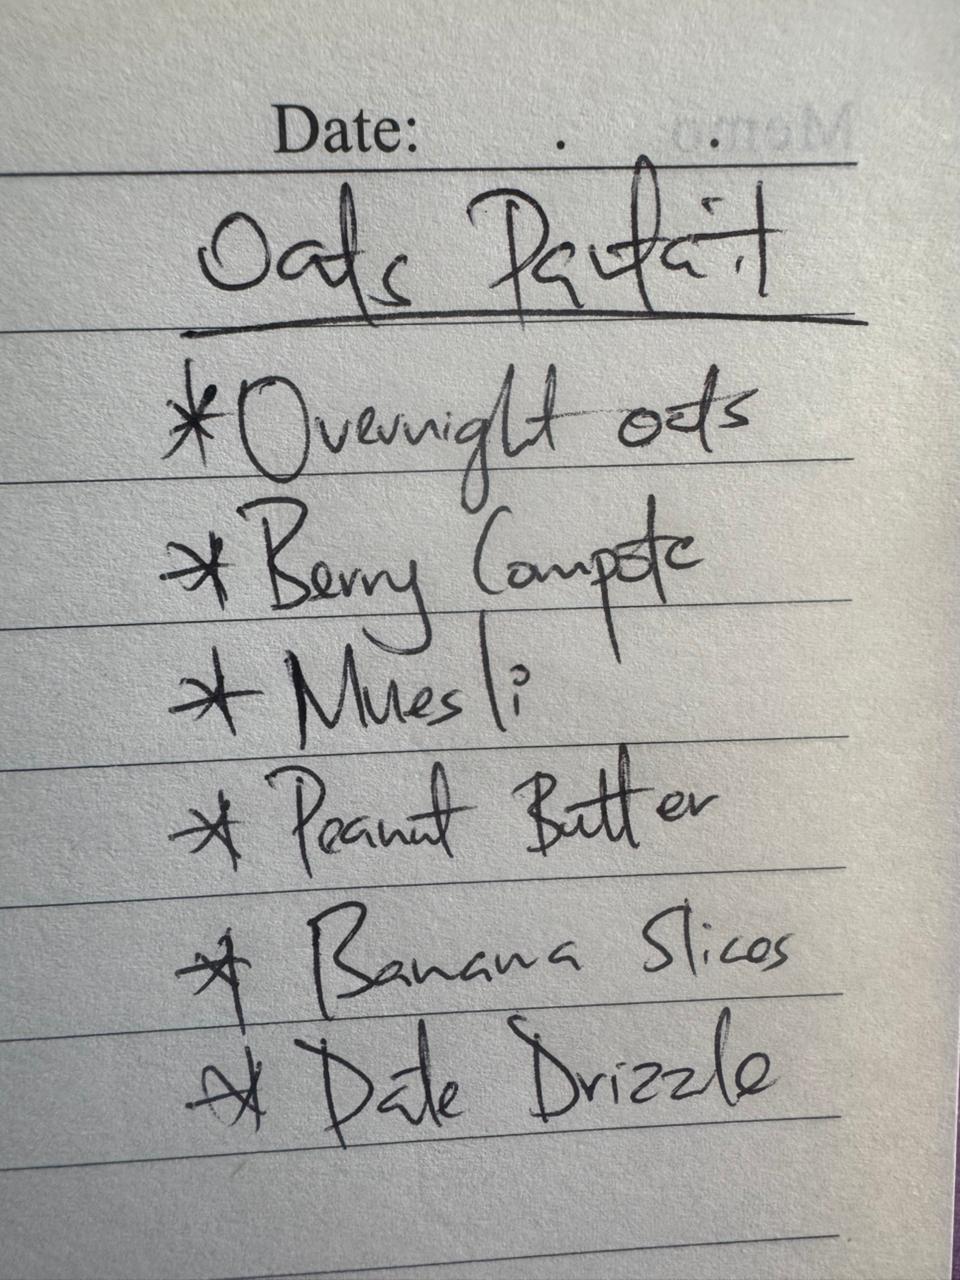 Date: . .
Oats Parfait
* Overnight oats
* Berry Compote
* Muesli
* Peanut Butter
* Banana Slices
* Date Drizzle
Memo